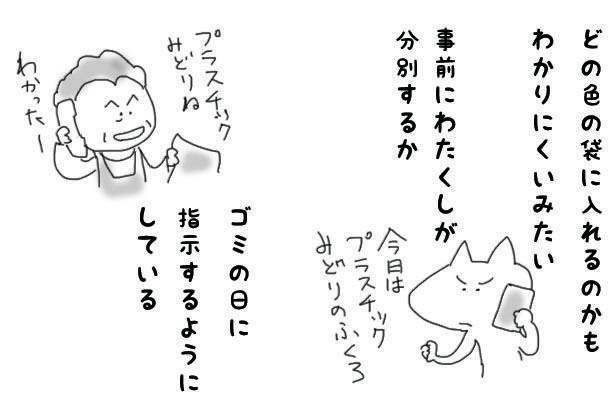 どの色の袋に入れるのかも
わかりにくいみたい
事前にわたくしが
分別するか
今日は
プラスチック
みどりのふくろ
プラスチック
みどりね
わかったー
ゴミの日に
指示するように
している